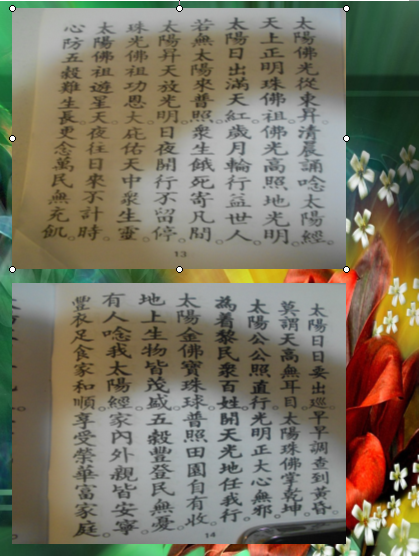 太陽佛光從東昇。清晨誦唸太陽經。
天上正明珠佛祖。佛光高照地光明。
太陽日出滿天紅。歲月輪行益世人。
若無太陽來普照。眾生餓死寄凡間。
太陽昇天放光明。日夜開行不留停。
珠光佛祖功恩大。庇佑天中眾生靈。
太陽佛祖遊星天。夜往日來不計時。
心防五穀難生長。更念萬民無充飢。
13
太陽日日要出巡。早早調查到黃昏。
莫謂天高無耳目。太陽珠佛掌乾坤。
太陽公公照直行。光明正大心無邪。
為着黎民眾百姓。開天光地任我行。
太陽金佛寶珠球。普照田園自有收。
地上生物皆茂盛。五穀豐登民無憂。
有人唸我太陽經。家內外親皆安寧。
豐衣足食家和順。享受榮華富家庭。
14